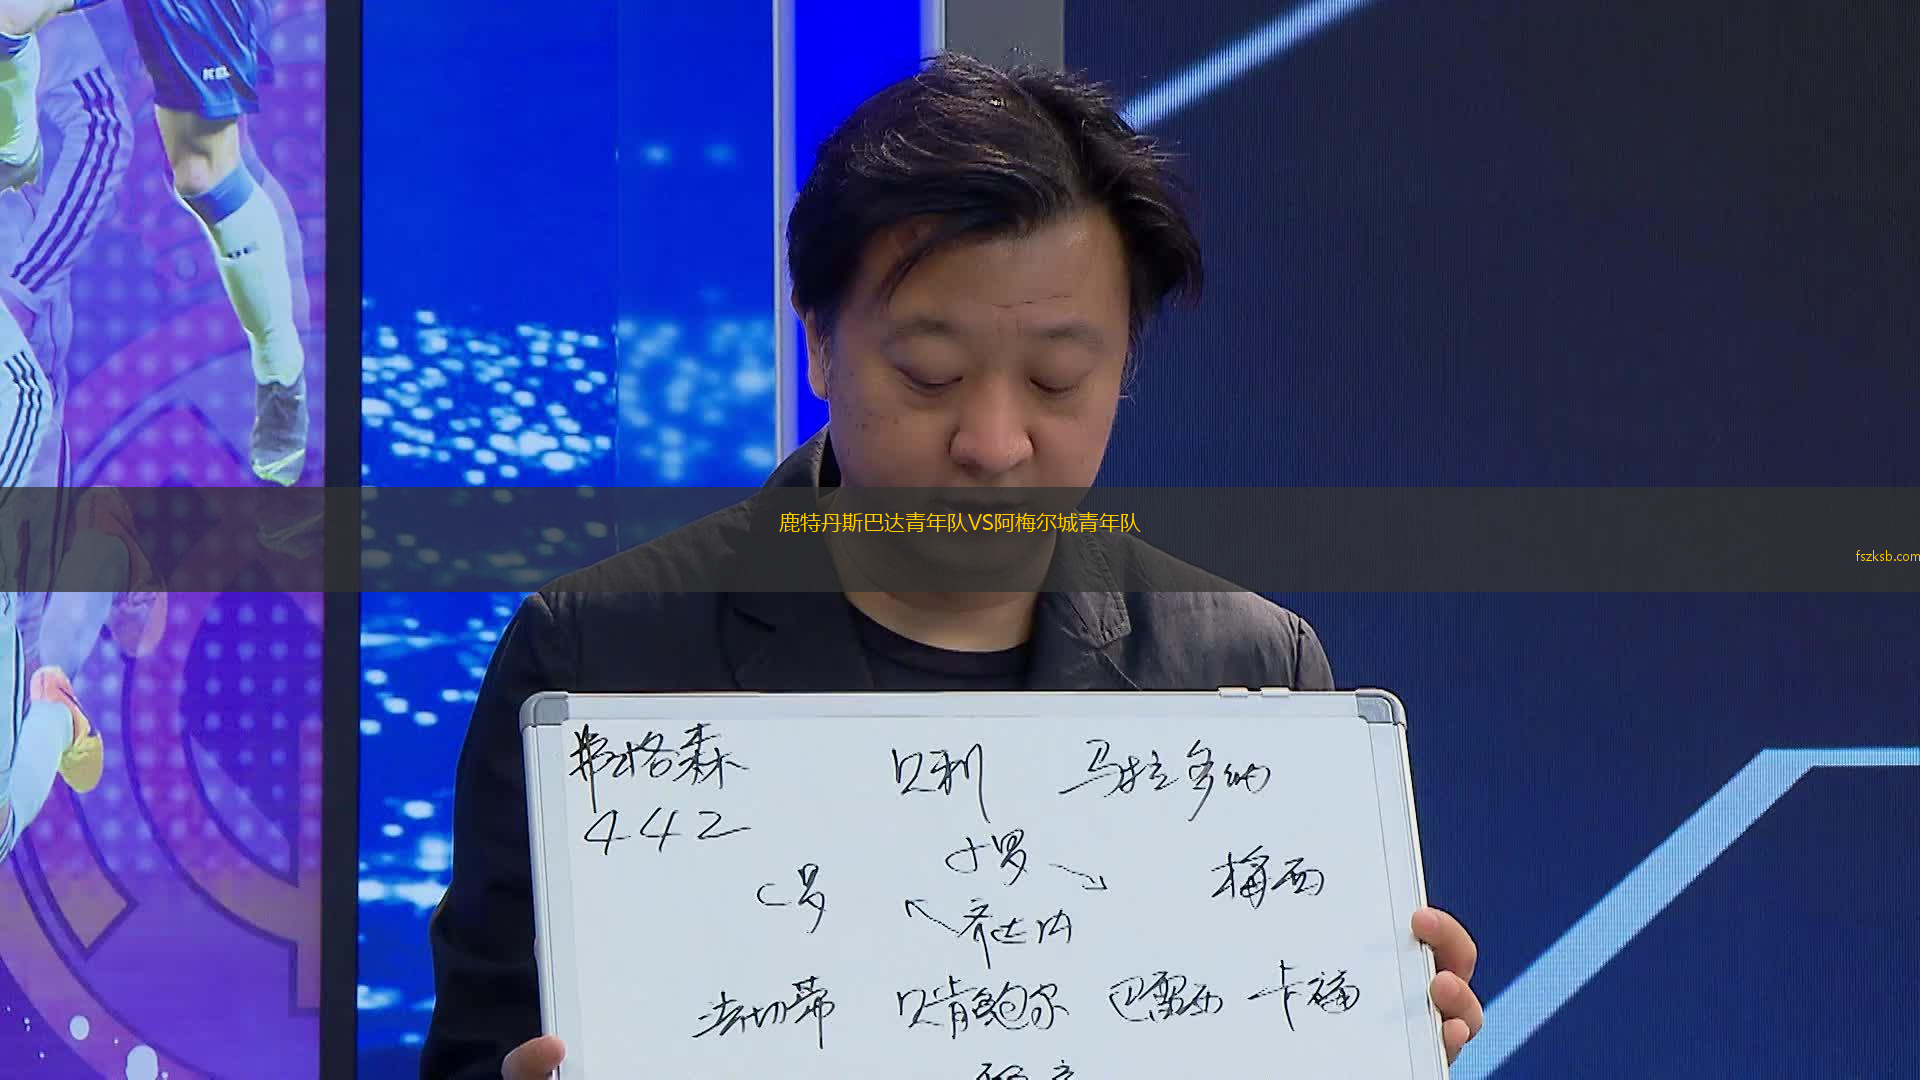 鹿特丹斯巴达青年队VS阿梅尔城青年队
fszksb.com
弗格森 贝利 马拉多纳
442
小罗
C罗 梅西
齐达内
法切蒂 贝肯鲍尔 巴雷西 卡福